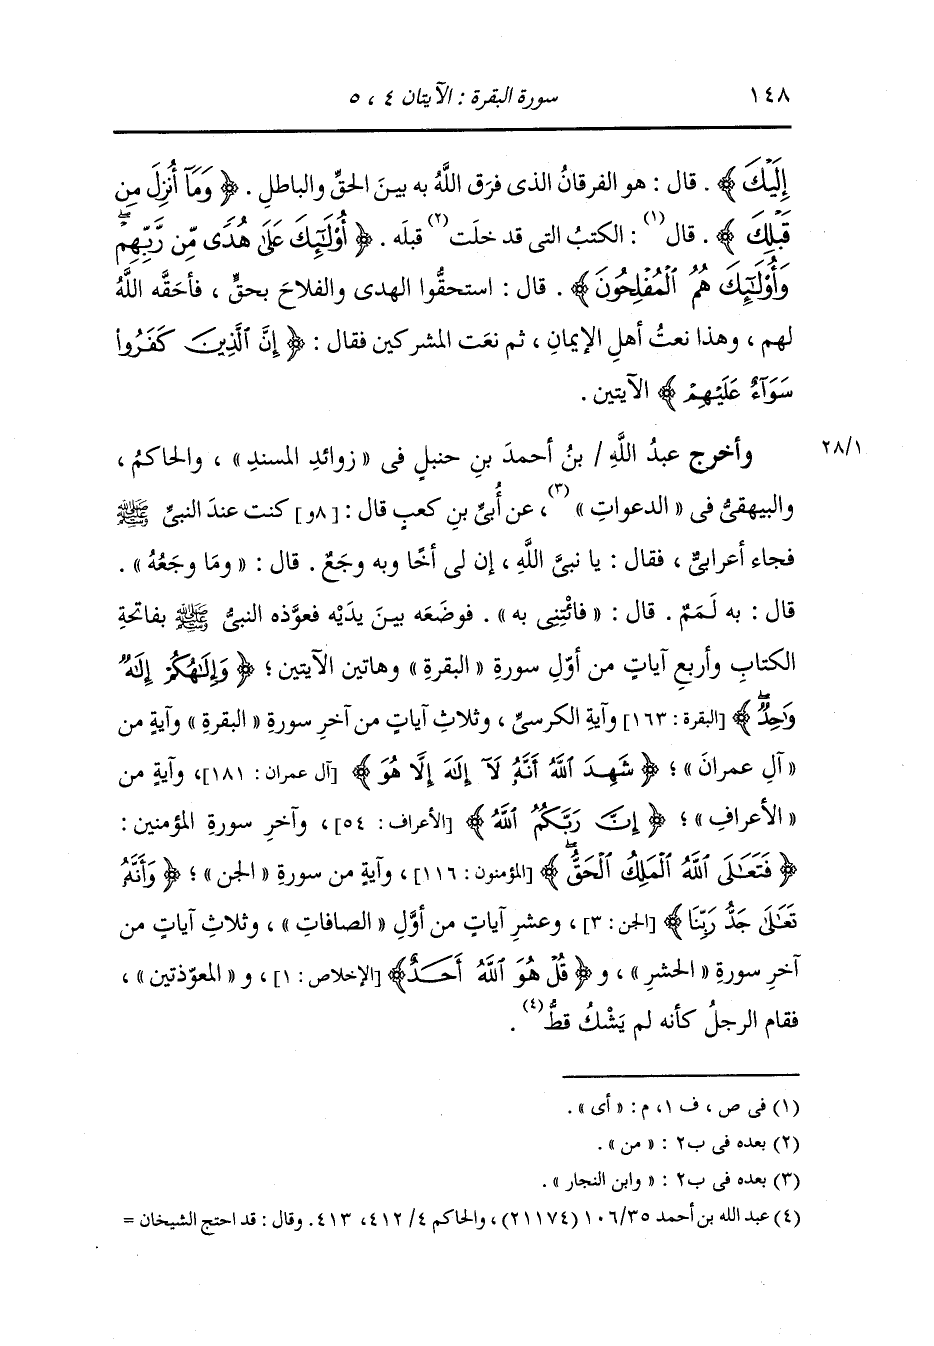 ١٤٨ سورة البقرة : الآيتان ٤ ، ٥
إِلَيْكَ ﴾ . قال : هو الفرقانُ الذى فرَق اللَّهُ به بينَ الحقِّ والباطلِ . ﴿ وَمَآ أُنزِلَ مِن
قَبْلِكَ ﴾ . قال(١) : الكتبُ التى قد خلَت(٢) قبلَه . ﴿ أُوْلَٰٓئِكَ عَلَىٰ هُدًى مِّن رَّبِّهِمْۖ
وَأُوْلَٰٓئِكَ هُمُ ٱلْمُفْلِحُونَ ﴾ . قال : استحقُّوا الهدى والفلاحَ بحقٍّ ، فأحَقَّه اللَّهُ
لهم ، وهذا نعتُ أهلِ الإيمانِ ، ثم نعَت المشركين فقال : ﴿ إِنَّ ٱلَّذِينَ كَفَرُوا
سَوَآءٌ عَلَيْهِمْ ﴾ الآيتين .
٢٨/١ وأخرج عبدُ اللَّهِ / بنُ أحمدَ بنِ حنبلٍ فى « زوائدِ المسندِ » ، والحاكمُ ،
والبيهقىُّ فى « الدعواتِ »(٣) ، عن أُبىِّ بنِ كعبٍ قال : [ ٨و ] كنت عندَ النبىِّ ﷺ
فجاء أعرابىٌّ ، فقال : يا نبىَّ اللَّهِ ، إن لى أخًا وبه وجَعٌ . قال : « ومَا وجَعُهُ » .
قال : به لَمَمٌ . قال : « فأْتِنِى به » . فوضَعَه بينَ يدَيْه فعوَّذه النبىُّ ﷺ بفاتحةِ
الكتابِ وأربعِ آياتٍ من أوّلِ سورةِ « البقرةِ » وهاتين الآيتين ؛ ﴿ وَإِلَٰهُكُمْ إِلَٰهٌ
وَٰحِدٌۖ ﴾ [البقرة : ١٦٣] وآيةِ الكرسىِّ ، وثلاثِ آياتٍ من آخرِ سورةِ « البقرةِ » وآيةٍ من
« آلِ عمرانَ » ؛ ﴿ شَهِدَ ٱللَّهُ أَنَّهُۥ لَآ إِلَٰهَ إِلَّا هُوَ ﴾ [آل عمران : ١٨١]، وآيةٍ من
« الأعرافِ » ؛ ﴿ إِنَّ رَبَّكُمُ ٱللَّهُ ﴾ [الأعراف : ٥٤] ، وآخرِ سورةِ المؤمنين :
﴿ فَتَعَٰلَى ٱللَّهُ ٱلْمَلِكُ ٱلْحَقُّۖ ﴾ [المؤمنون : ١١٦] ، وآيةٍ من سورةِ « الجن » ؛ ﴿ وَأَنَّهُۥ
تَعَٰلَىٰ جَدُّ رَبِّنَا ﴾ [الجن : ٣] ، وعشرِ آياتٍ من أوَّلِ « الصافاتِ » ، وثلاثِ آياتٍ من
آخرِ سورةِ « الحشرِ » ، و ﴿ قُلْ هُوَ ٱللَّهُ أَحَدٌ﴾ [الإخلاص : ١] ، و « المعوّذتين » ،
فقام الرجلُ كأنه لم يَشْكُ قطُّ(٤) .
(١) فى ص ، ف ١، م : « أى » .
(٢) بعده فى ب٢ : « من » .
(٣) بعده فى ب٢ : « وابن النجار » .
(٤) عبد الله بن أحمد ١٠٦/٣٥ (٢١١٧٤) ، والحاكم ٤/ ٤١٢، ٤١٣. وقال : قد احتج الشيخان =